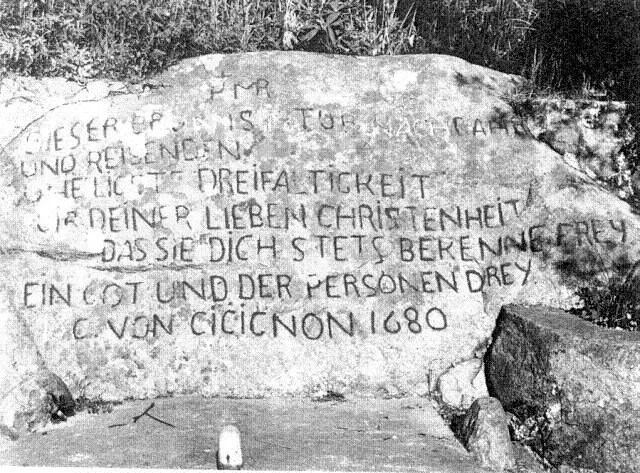 PMR
DIESER BRUN IST
UND REISENDEN
DREIFALTIGKEIT
DEINER LIEBEN CHRISTENHEIT
DAS SIE DICH STETS BEKENNE FREY
EIN GOT UND DER PERSONEN DREY
C. VON CICIGNON 1680